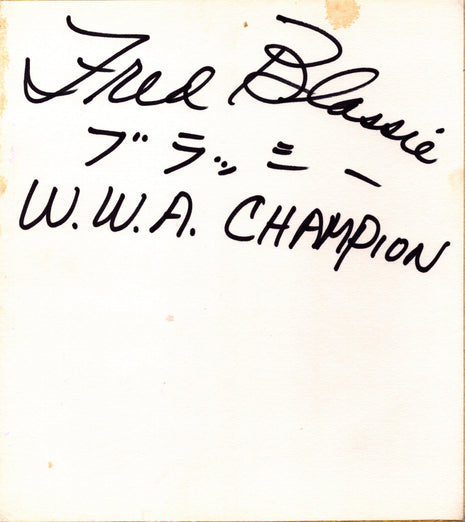 Fred Blassie
ブラッシー
W.W.A. CHAMPION